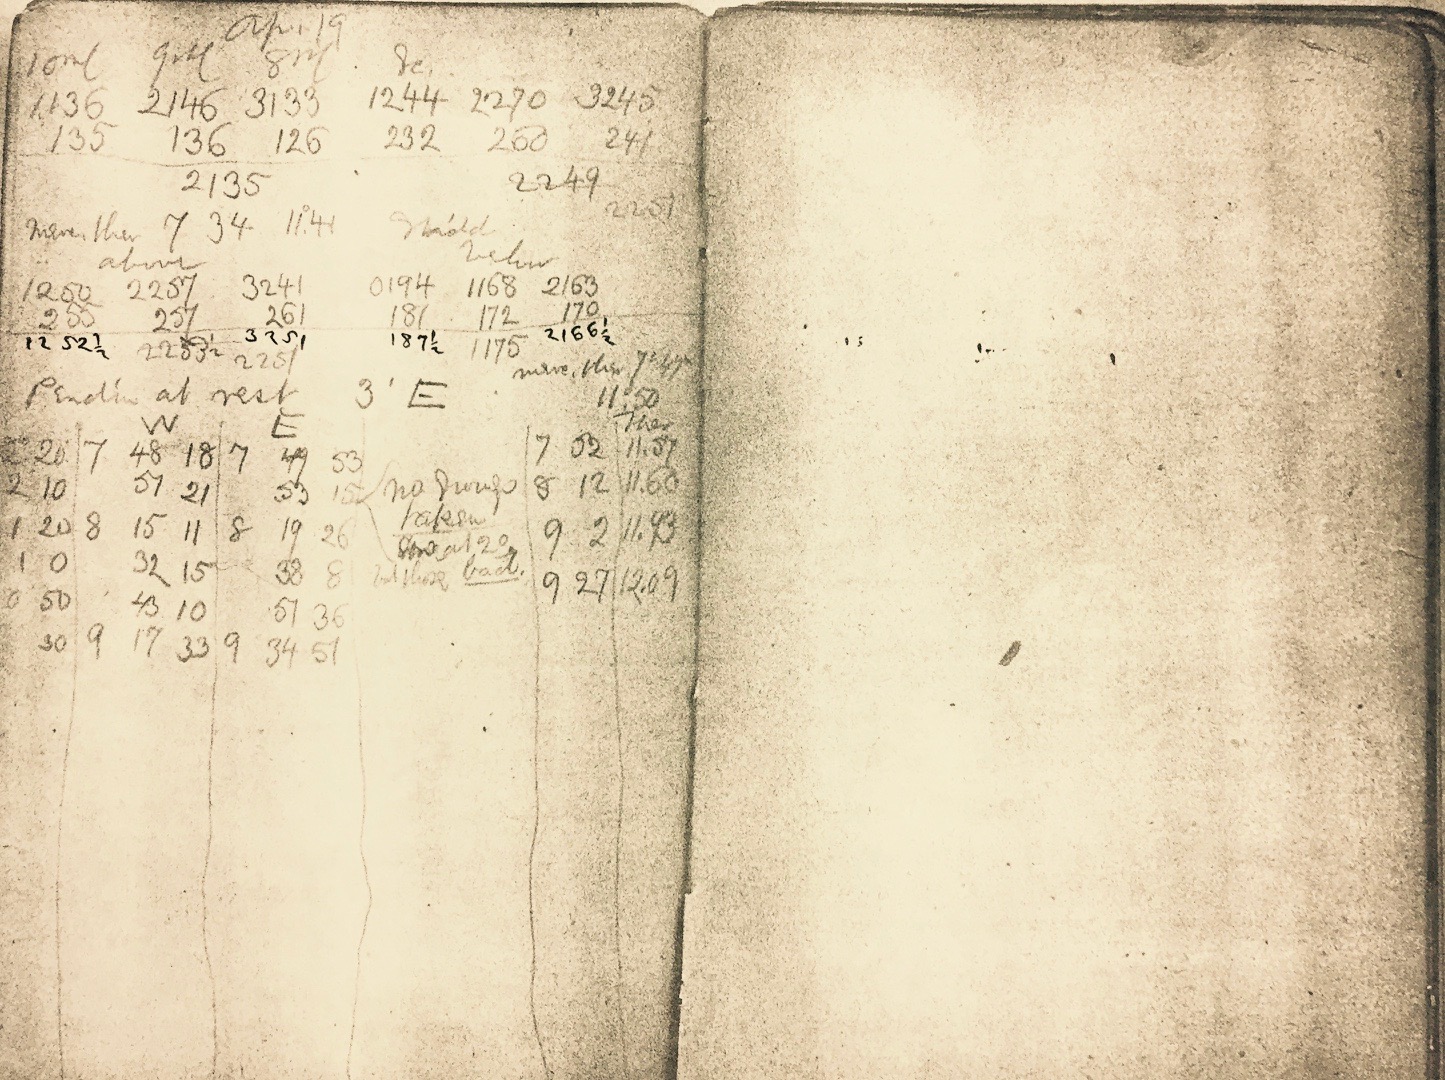 Apr. 19
10ml 9ml 8ml &c.
1136 2146 3133 1244 2270 3245
135 136 126 232 260 241
2135 2249
2251
7 34 11.41
above below
1250 2257 3241 0194 1168 2163
255 257 261 181 172 170
1252½ 3251 187½ 2166½
2251 1175
Pend'm at rest 3' E 11.50
W E Ther
20 7 48 18 7 49 53 7 52 11.57
2 10 51 21 53 15 no swings 8 12 11.60
taken
1 20 8 15 11 8 19 26 9 2 11.93
1 0 32 15 38 8 bad. 9 27 12.09
0 50 43 10 51 36
30 9 17 33 9 34 51